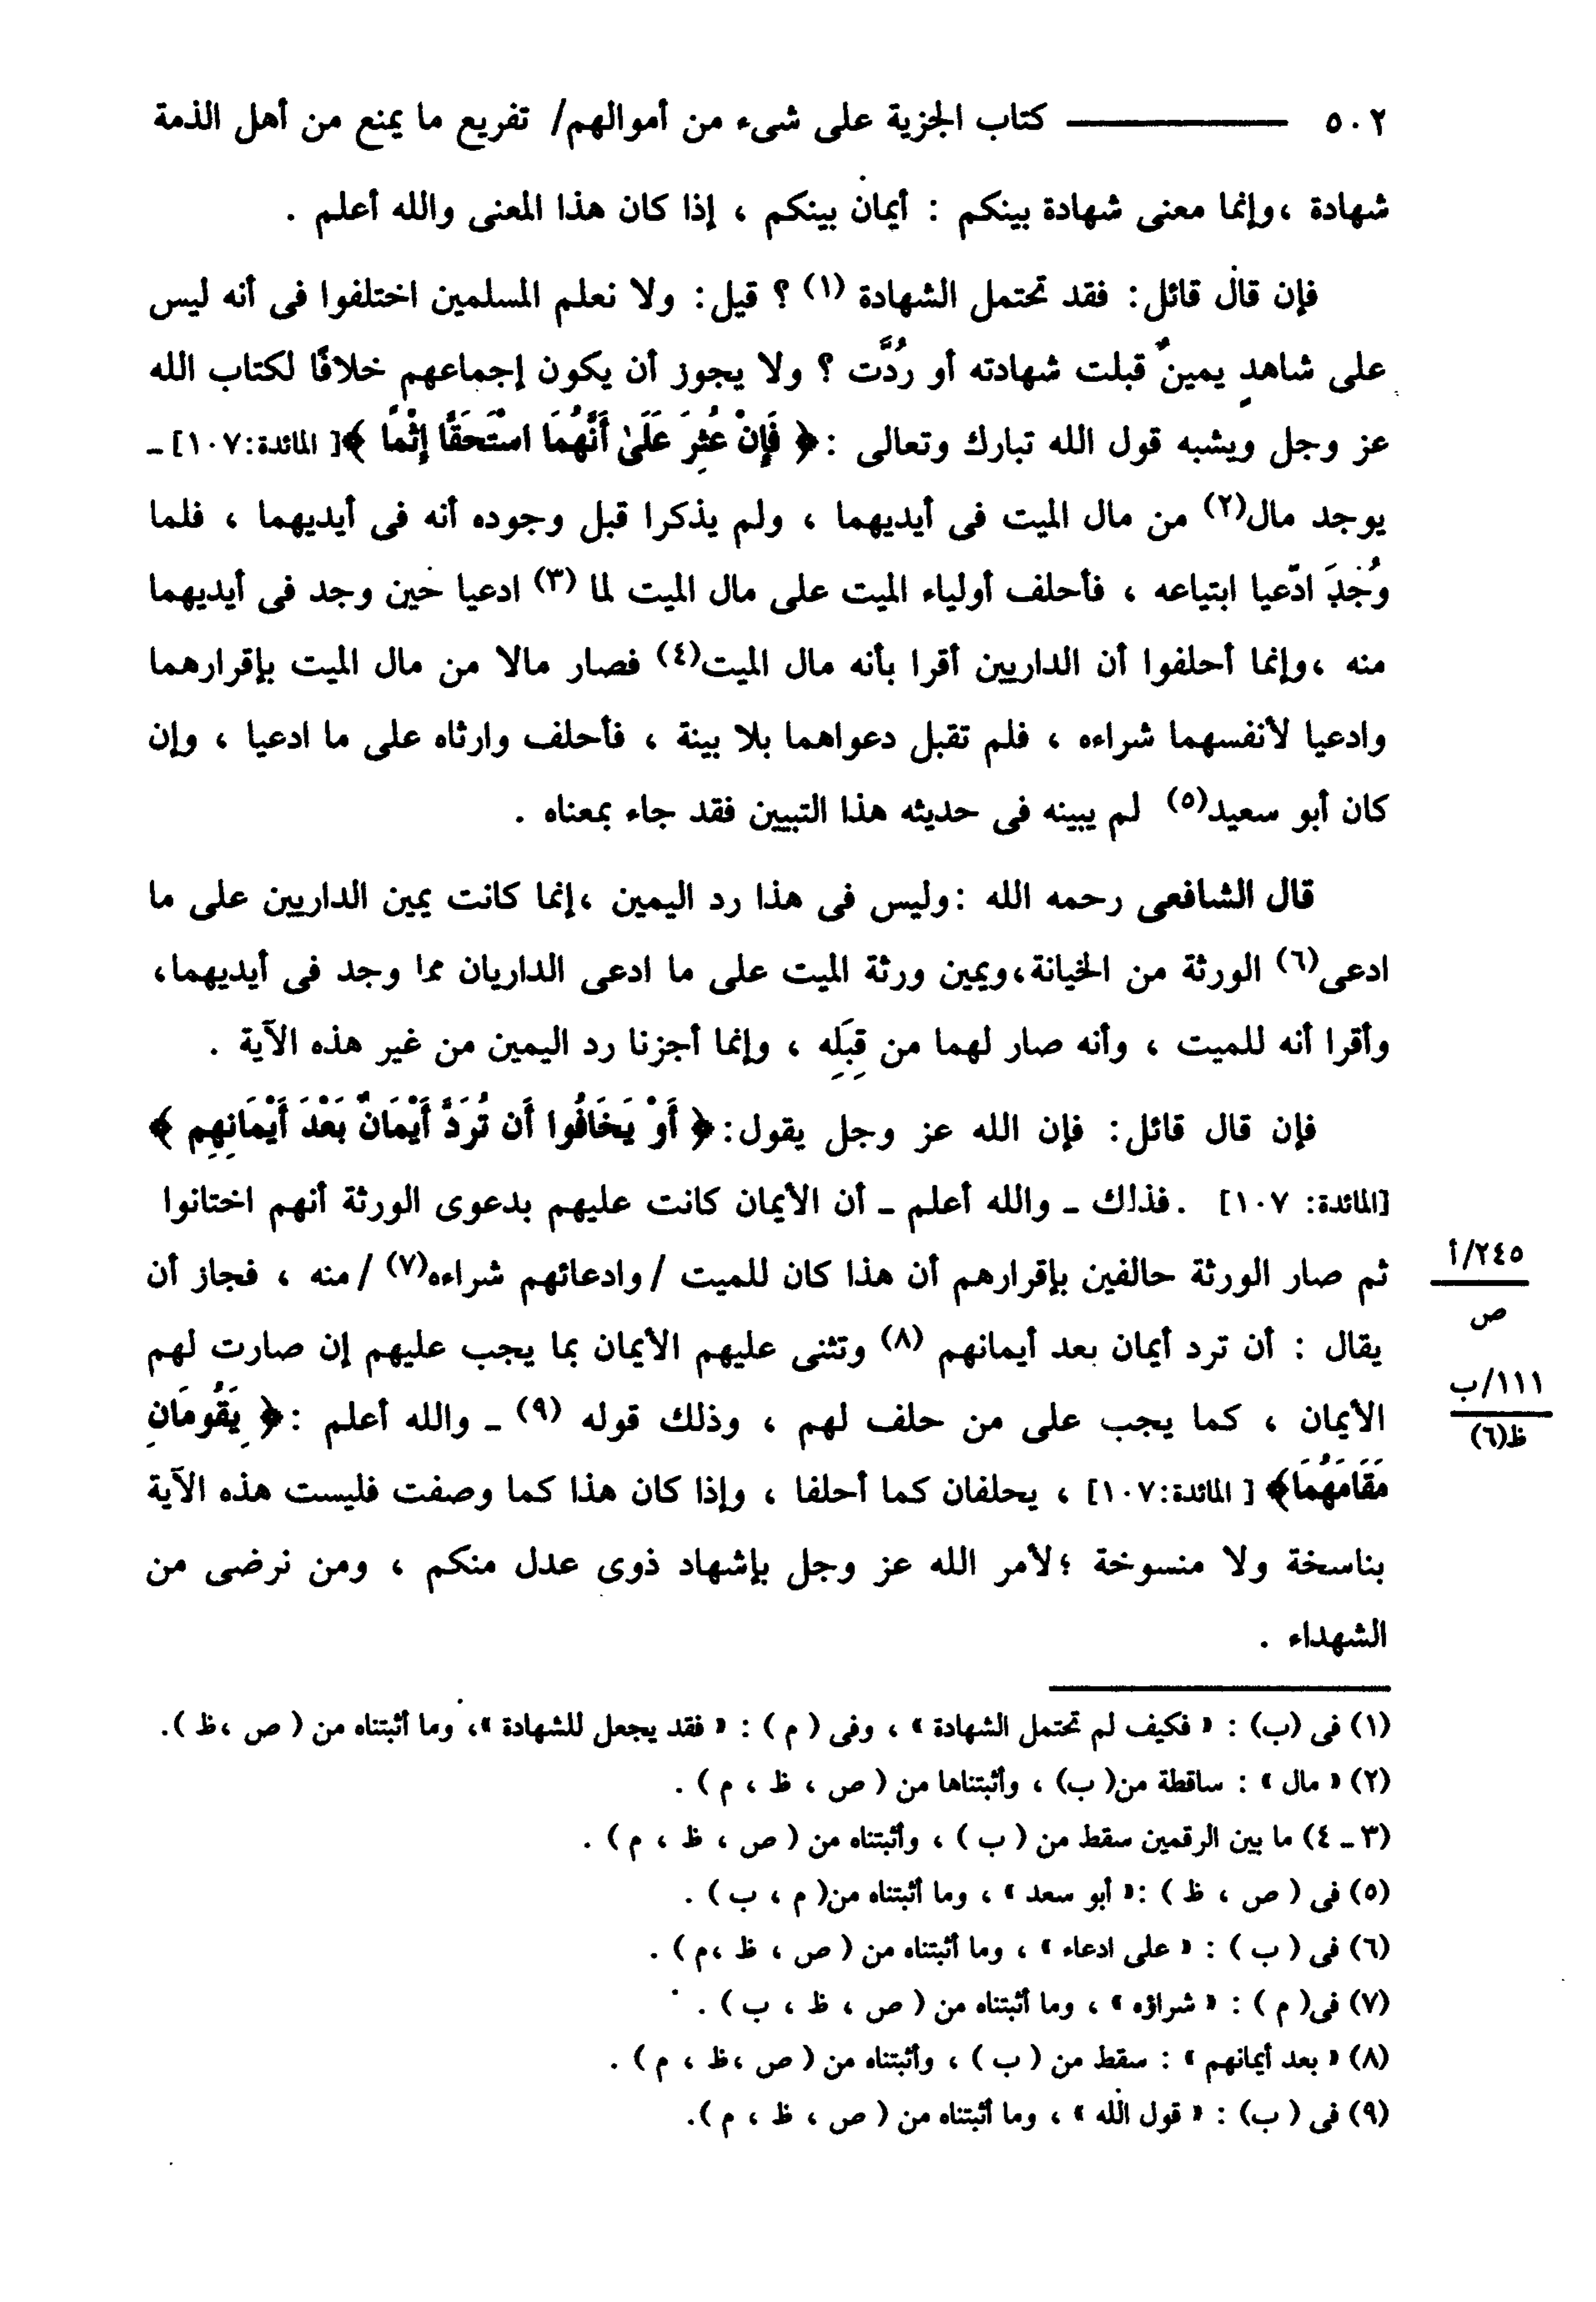 ٥٠٢ ــــــــــــــ كتاب الجزية على شىء من أموالهم/ تفريع ما يمنع من أهل الذمة
شهادة ،وإنما معنى شهادة بينكم : أيمان بينكم ، إذا كان هذا المعنى والله أعلم .
فإن قال قائل: فقد تحتمل الشهادة (١) ؟ قيل: ولا نعلم المسلمين اختلفوا فى أنه ليس
على شاهدٍ يمينٌ قبلت شهادته أو رُدَّت ؟ ولا يجوز أن يكون إجماعهم خلافًا لكتاب الله
عز وجل ويشبه قول الله تبارك وتعالى :﴿ فَإِنْ عُثِرَ عَلَىٰ أَنَّهُمَا اسْتَحَقَّا إِثْمًا ﴾[ المائدة:١٠٧] ـ
يوجد مال(٢) من مال الميت فى أيديهما ، ولم يذكرا قبل وجوده أنه فى أيديهما ، فلما
وُجِدَ ادّعيا ابتياعه ، فأحلف أولياء الميت على مال الميت لما (٣) ادعيا حين وجد فى أيديهما
منه ،وإنما أحلفوا أن الداريين أقرا بأنه مال الميت(٤) فصار مالا من مال الميت بإقرارهما
وادعيا لأنفسهما شراءه ، فلم تقبل دعواهما بلا بينة ، فأحلف وارثاه على ما ادعيا ، وإن
كان أبو سعيد(٥) لم يبينه فى حديثه هذا التبيين فقد جاء بمعناه .
قال الشافعى رحمه الله :وليس فى هذا رد اليمين ،إنما كانت يمين الداريين على ما
ادعى(٦) الورثة من الخيانة،ويمين ورثة الميت على ما ادعى الداريان مما وجد فى أيديهما،
وأقرا أنه للميت ، وأنه صار لهما من قِبَلِه ، وإنما أجزنا رد اليمين من غير هذه الآية .
فإن قال قائل: فإن الله عز وجل يقول:﴿ أَوْ يَخَافُوا أَن تُرَدَّ أَيْمَانٌ بَعْدَ أَيْمَانِهِم ﴾
[المائدة: ١٠٧] .فذلك ـ والله أعلم ـ أن الأيمان كانت عليهم بدعوى الورثة أنهم اختانوا
ثم صار الورثة حالفين بإقرارهم أن هذا كان للميت /وادعائهم شراءه(٧) /منه ، فجاز أن
٢٤٥/أ
ص
يقال : أن ترد أيمان بعد أيمانهم (٨) وتثنى عليهم الأيمان بما يجب عليهم إن صارت لهم
١١١/ب
ظ(٦)
الأيمان ، كما يجب على من حلف لهم ، وذلك قوله (٩) ـ والله أعلم :﴿ يَقُومَانِ
مَقَامَهُمَا﴾ [ المائدة:١٠٧] ، يحلفان كما أحلفا ، وإذا كان هذا كما وصفت فليست هذه الآية
بناسخة ولا منسوخة ؛لأمر الله عز وجل بإشهاد ذوى عدل منكم ، ومن نرضى من
الشهداء .
(١) فى (ب) : « فكيف لم تحتمل الشهادة » ، وفى ( م ) : « فقد يجعل للشهادة »، وما أثبتناه من ( ص ،ظ ).
(٢) « مال » : ساقطة من( ب) ، وأثبتناها من ( ص ، ظ ، م ) .
(٣ ـ ٤) ما بين الرقمين سقط من ( ب ) ، وأثبتناه من ( ص ، ظ ، م ) .
(٥) فى ( ص ، ظ ) :« أبو سعد » ، وما أثبتناه من( م ، ب ) .
(٦) فى ( ب ) : « على ادعاء » ، وما أثبتناه من ( ص ، ظ ،م ) .
(٧) فى( م ) : « شراؤه » ، وما أثبتناه من ( ص ، ظ ، ب ) .
(٨) « بعد أيمانهم » : سقط من ( ب ) ، وأثبتناه من ( ص ،ظ ، م ) .
(٩) فى ( ب) : « قول الله » ، وما أثبتناه من ( ص ، ظ ، م ).